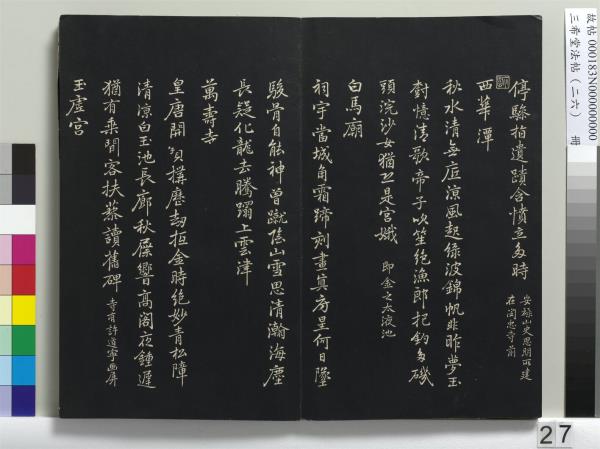 停驂指遺蹟含憤立多時 安祿山史思明所建
在閔忠寺前
西華潭
秋水清無底涼風起綠波錦帆非昨夢玉
對憶清歌帝子吹笙絕漁郎把釣多磯
頭浣沙女猶恐是宮娥 即金之太液池
白馬廟
祠宇當城角霜蹄刻畫真房星何日墜
駿骨自能神曾蹴陰山雪思清瀚海塵
長疑化龍去騰躍上雲津
萬壽寺
皇唐開寶構歷劫抵金時絕妙青松障
清涼白玉池長廊秋屧響高閣夜鍾遲
猶有乘閒客扶藜讀舊碑 寺有許道寧画屏
玉虛宮
故帖 000183N000000000
三希堂法帖(二六) 冊
27